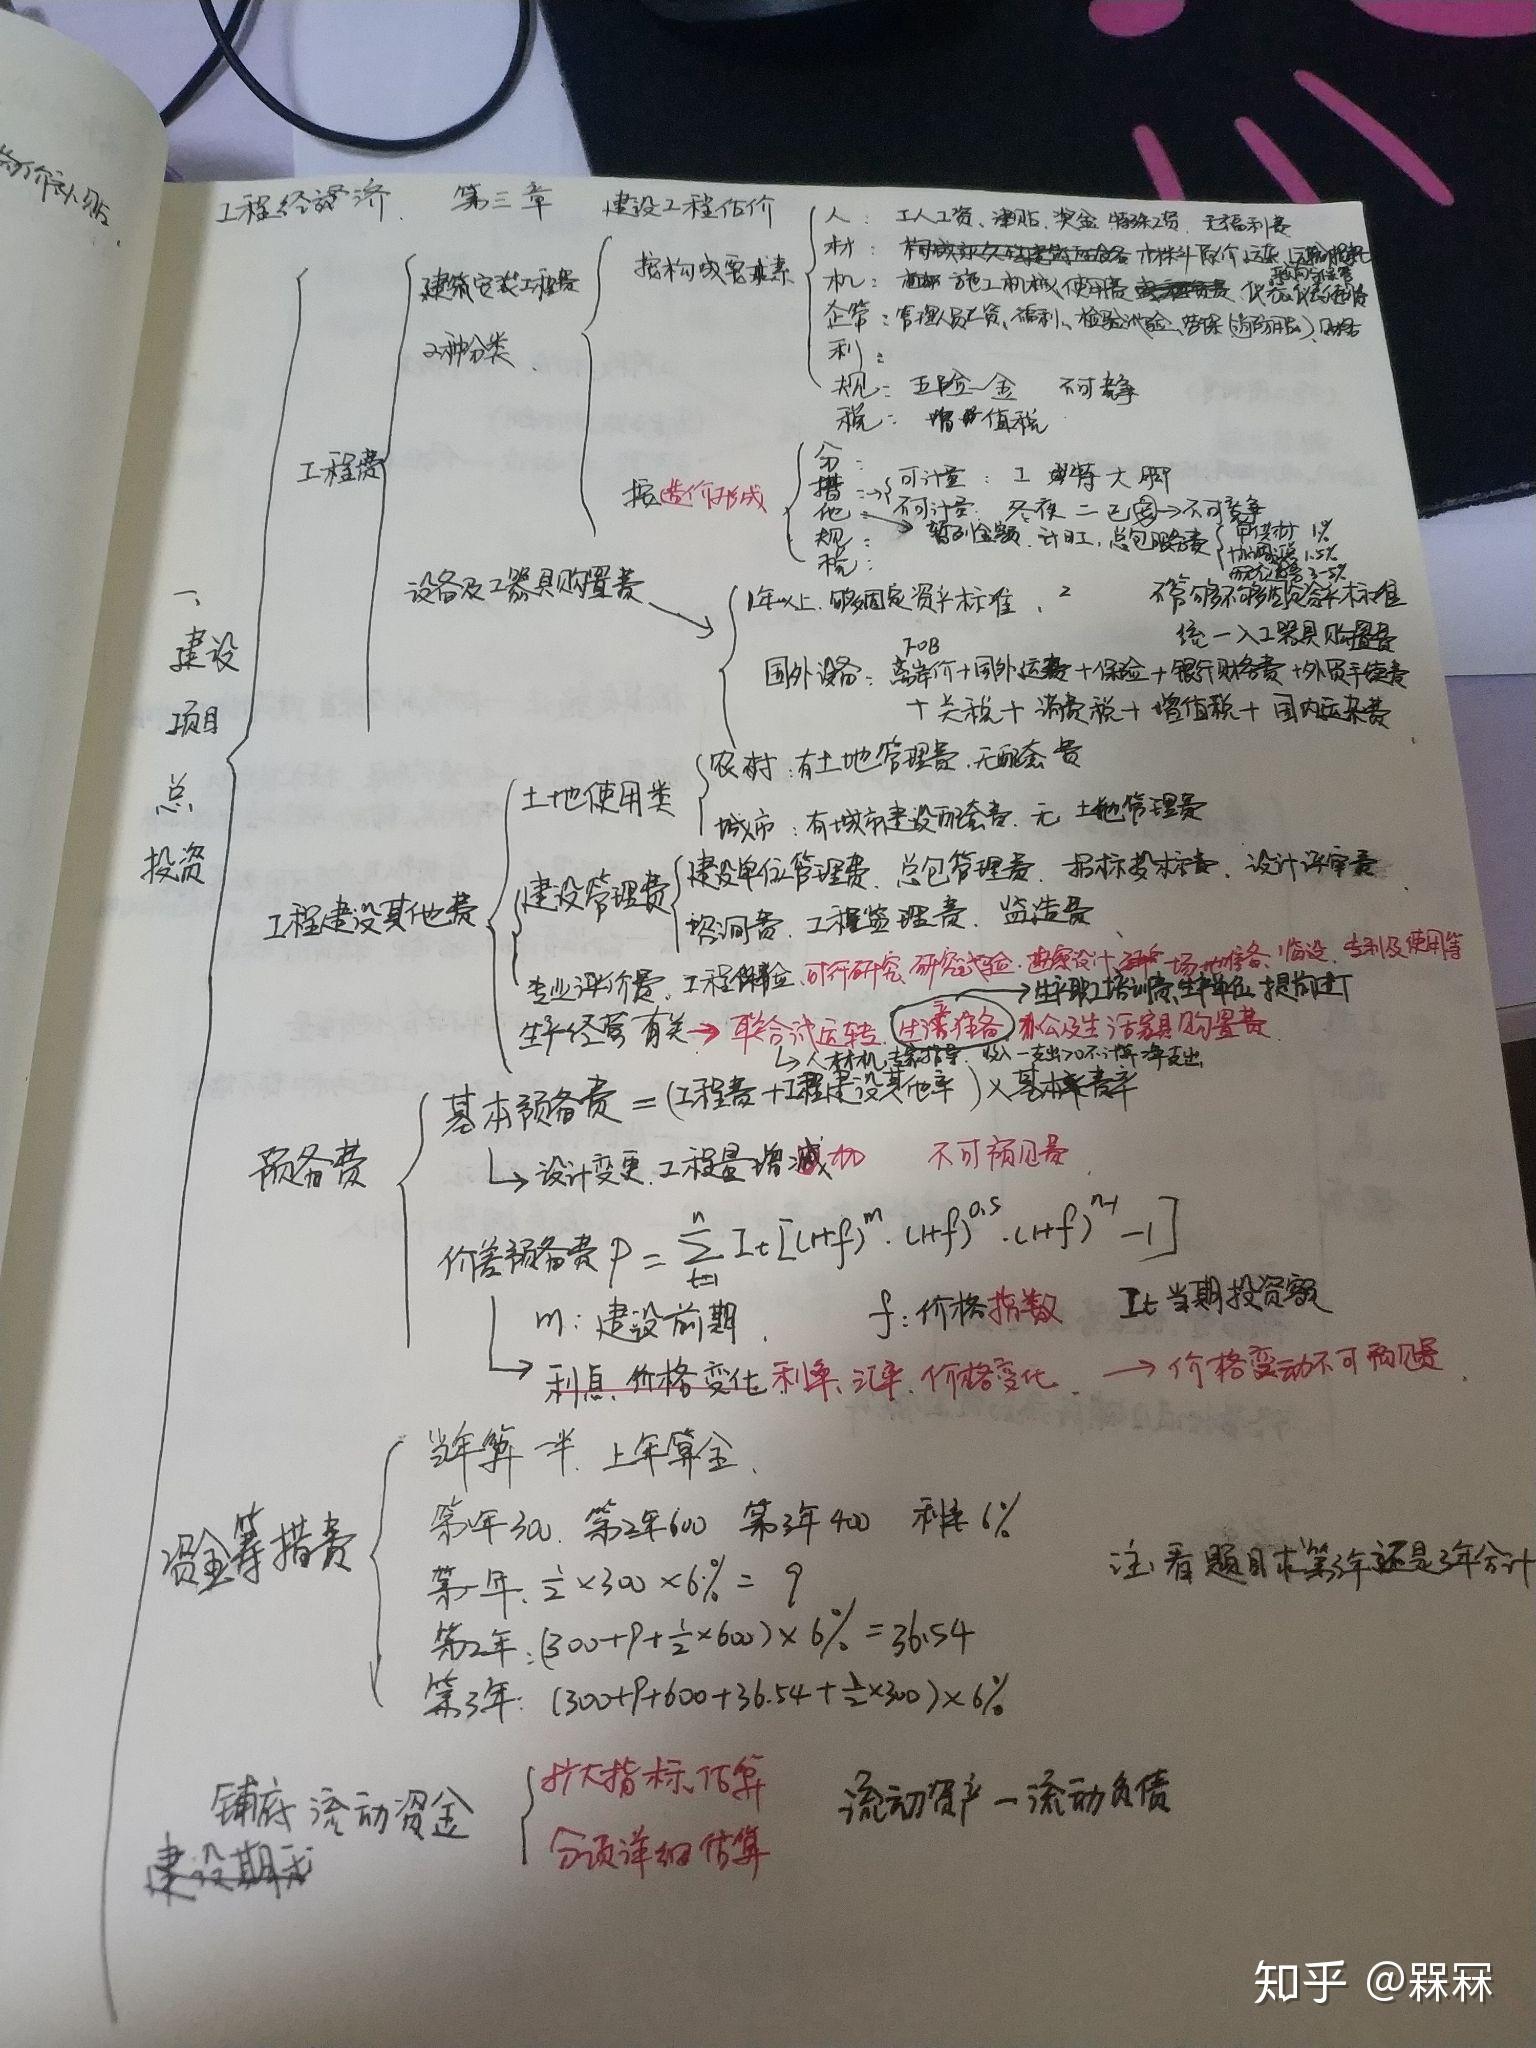 工程经济 第三章 建设工程估价
一、建设项目总投资
工程费
建筑安装工程费
2种分类
按构成要素
人: 工人工资、津贴、奖金 特殊工资 无福利费
材: 材料原价 运杂
机: 施工机械使用费
企管: 管理人员工资、福利、检验试验、劳保
利:
规: 五险一金 不可竞争
税: 增值税
按造价形成
分:
措: 可计量: 工 特大脚
不可计量 冬夜二已 → 不可竞争
他: 暂列金额、计日工、总包服务费
1%
1.5%
3-5%
规:
税:
设备及工器具购置费
1年以上、够固定资产标准、2 不管够不够固定资产标准
统一入工器具购置费
FOB
国外设备: 离岸价+国外运费+保险+银行财务费+外贸手续费
+关税+消费税+增值税+国内运杂费
工程建设其他费
土地使用类
农村: 有土地管理费、无配套费
城市: 有城市建设配套费、无土地管理费
建设管理费
建设单位管理费、总包管理费、招标投标费、设计评审费
咨询费、工程监理费、监造费
专业评价费、工程保险、可行研究、研究试验、勘察设计、场地准备、临设、专利及使用等
→生产职工培训费、生产单位提前进厂
生产经营有关→联合试运转、生产准备 办公及生活家具购置费
↳人材机 专家指导 收入-支出>0不计算净支出
预备费
基本预备费=(工程费+工程建设其他率)×基本率费率
↳设计变更、工程量增减 不可预见费
价差预备费 P=∑ⁿₜ₌₁ It[(1+f)^m·(1+f)^0.5·(1+f)^n-1 -1]
m: 建设前期 f: 价格指数 It当期投资额
↳利息、价格变化 利率、汇率、价格变化 → 价格变动不可预见费
资金筹措费
当年算一半、上年算全、
第1年300、第2年600 第3年400 利率6%
第一年: ½×300×6%=9
注: 看题目求第3年还是3年合计
第2年: (300+9+½×600)×6%=36.54
第3年: (300+9+600+36.54+½×300)×6%
铺底流动资金
扩大指标估算
流动资产-流动负债
分项详细估算
建设期
知乎 @槑冧